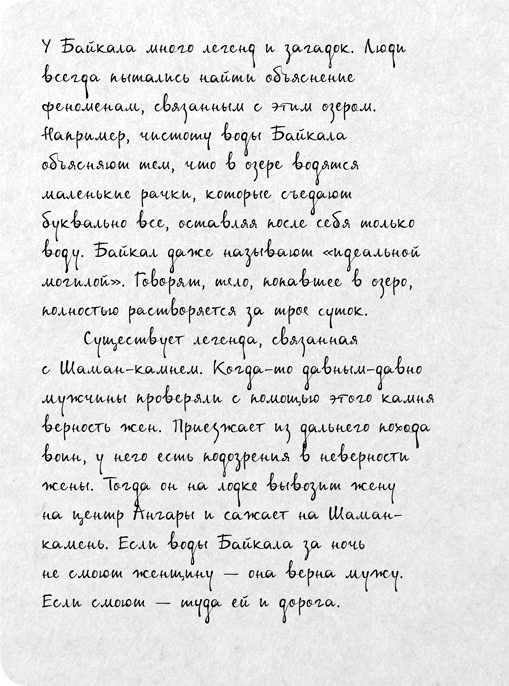 У Байкала много легенд и загадок. Люди
всегда пытались найти объяснение
феноменам, связанным с этим озером.
Например, чистоту воды Байкала
объясняют тем, что в озере водятся
маленькие рачки, которые съедают
буквально все, оставляя после себя только
воду. Байкал даже называют «идеальной
могилой». Говорят, тело, попавшее в озеро,
полностью растворяется за трое суток.
Существует легенда, связанная
с Шаман-камнем. Когда-то давным-давно
мужчины проверяли с помощью этого камня
верность жен. Приезжает из дальнего похода
воин, у него есть подозрения в неверности
жены. Тогда он на лодке вывозит жену
на центр Ангары и сажает на Шаман-
камень. Если воды Байкала за ночь
не смоют женщину — она верна мужу.
Если смоют — туда ей и дорога.